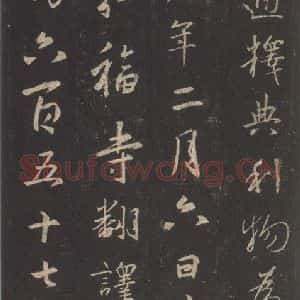 迎接典利物為
年二月六日
福寺翻譯
六百五十七
Shufawang.CN